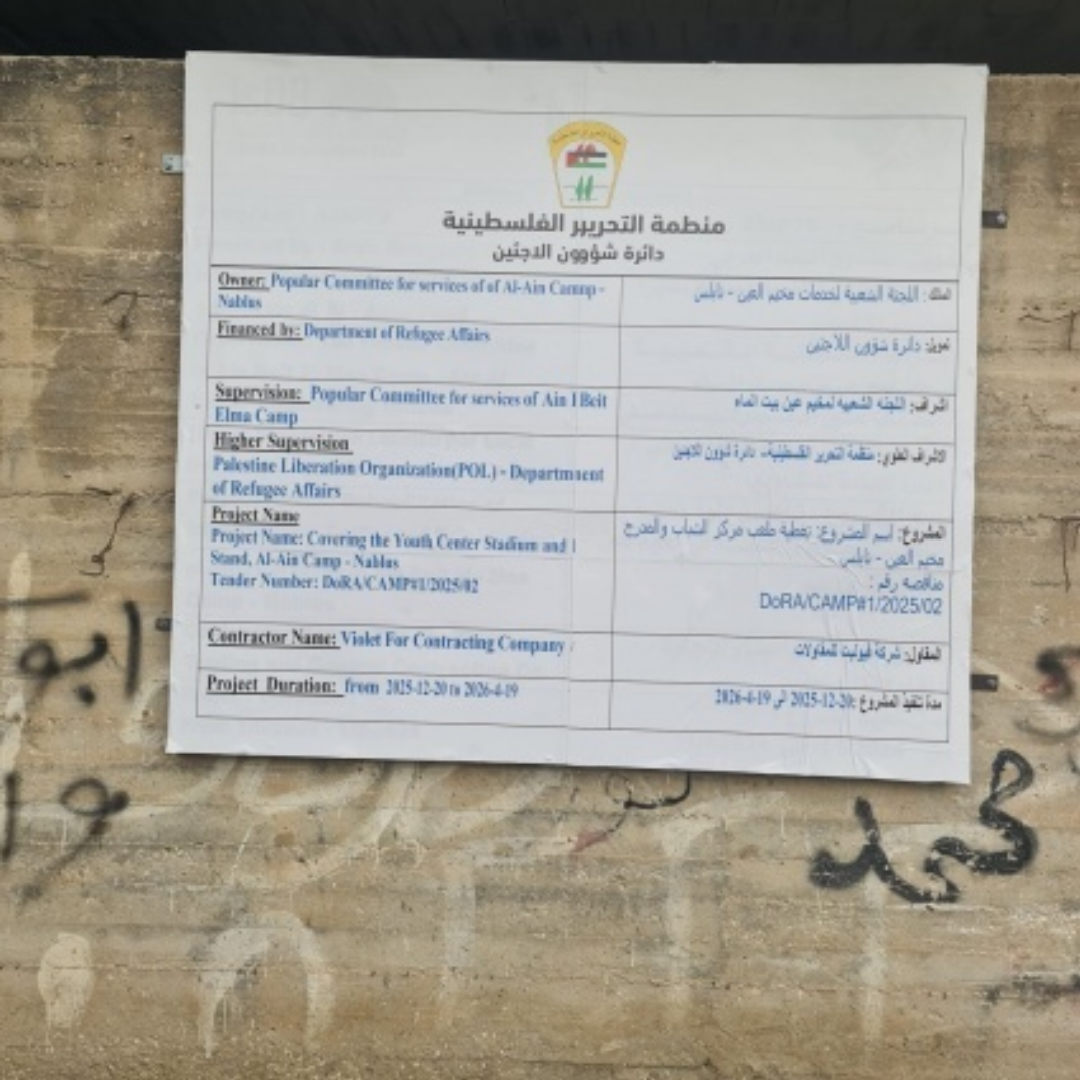 منظمة التحرير الفلسطينية
دائرة شؤوون الاجئين
Owner: Popular Committee for services of of Al-Ain Camnp -
Nablus
المالك: اللجنة الشعبية لخدمات مخيم العين - نابلس
Financed by: Department of Refugee Affairs
تمويل: دائرة شؤون اللاجئين
Supervision: Popular Committee for services of Ain l Beit
Elma Camp
اشراف: اللجنه الشعبيه لمخيم عين بيت الماء
Higher Supervision
Palestine Liberation Organization(POL) - Department
of Refugee Affairs
الاشراف العلوي: منظمة التحرير الفلسطينية- دائرة شوون اللاجئين
Project Name
Project Name: Covering the Youth Center Stadium and
Stand, Al-Ain Camp - Nablus
Tender Number: DoRA/CAMP#1/2025/02
المشروع: اسم المشروع: تغطية ملعب مركز الشباب والمدرج
مخيم العين - نابلس
مناقصة رقم :
DoRA/CAMP#1/2025/02
Contractor Name: Violet For Contracting Company
المقاول: شركة فيوليت للمقاولات
Project Duration: from 2025-12-20 to 2026-4-19
مدة تنفيذ المشروع :2025-12-20 الى 2026-4-19
ابو
محمد